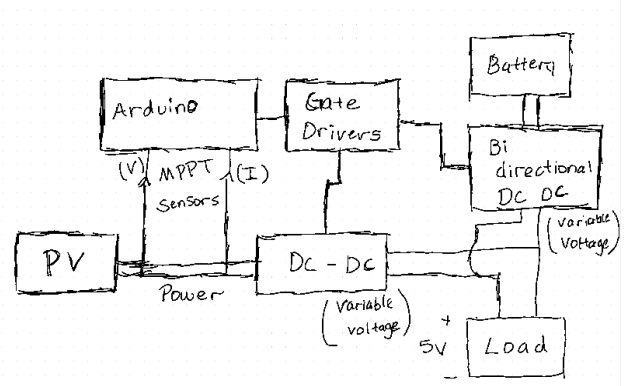 Battery
Arduino
Gate
Drivers
Bi
directional
DC DC
(V) MPPT (I)
sensors
(variable
voltage)
PV
DC - DC
Power
(variable
voltage)
+
5V
-
Load